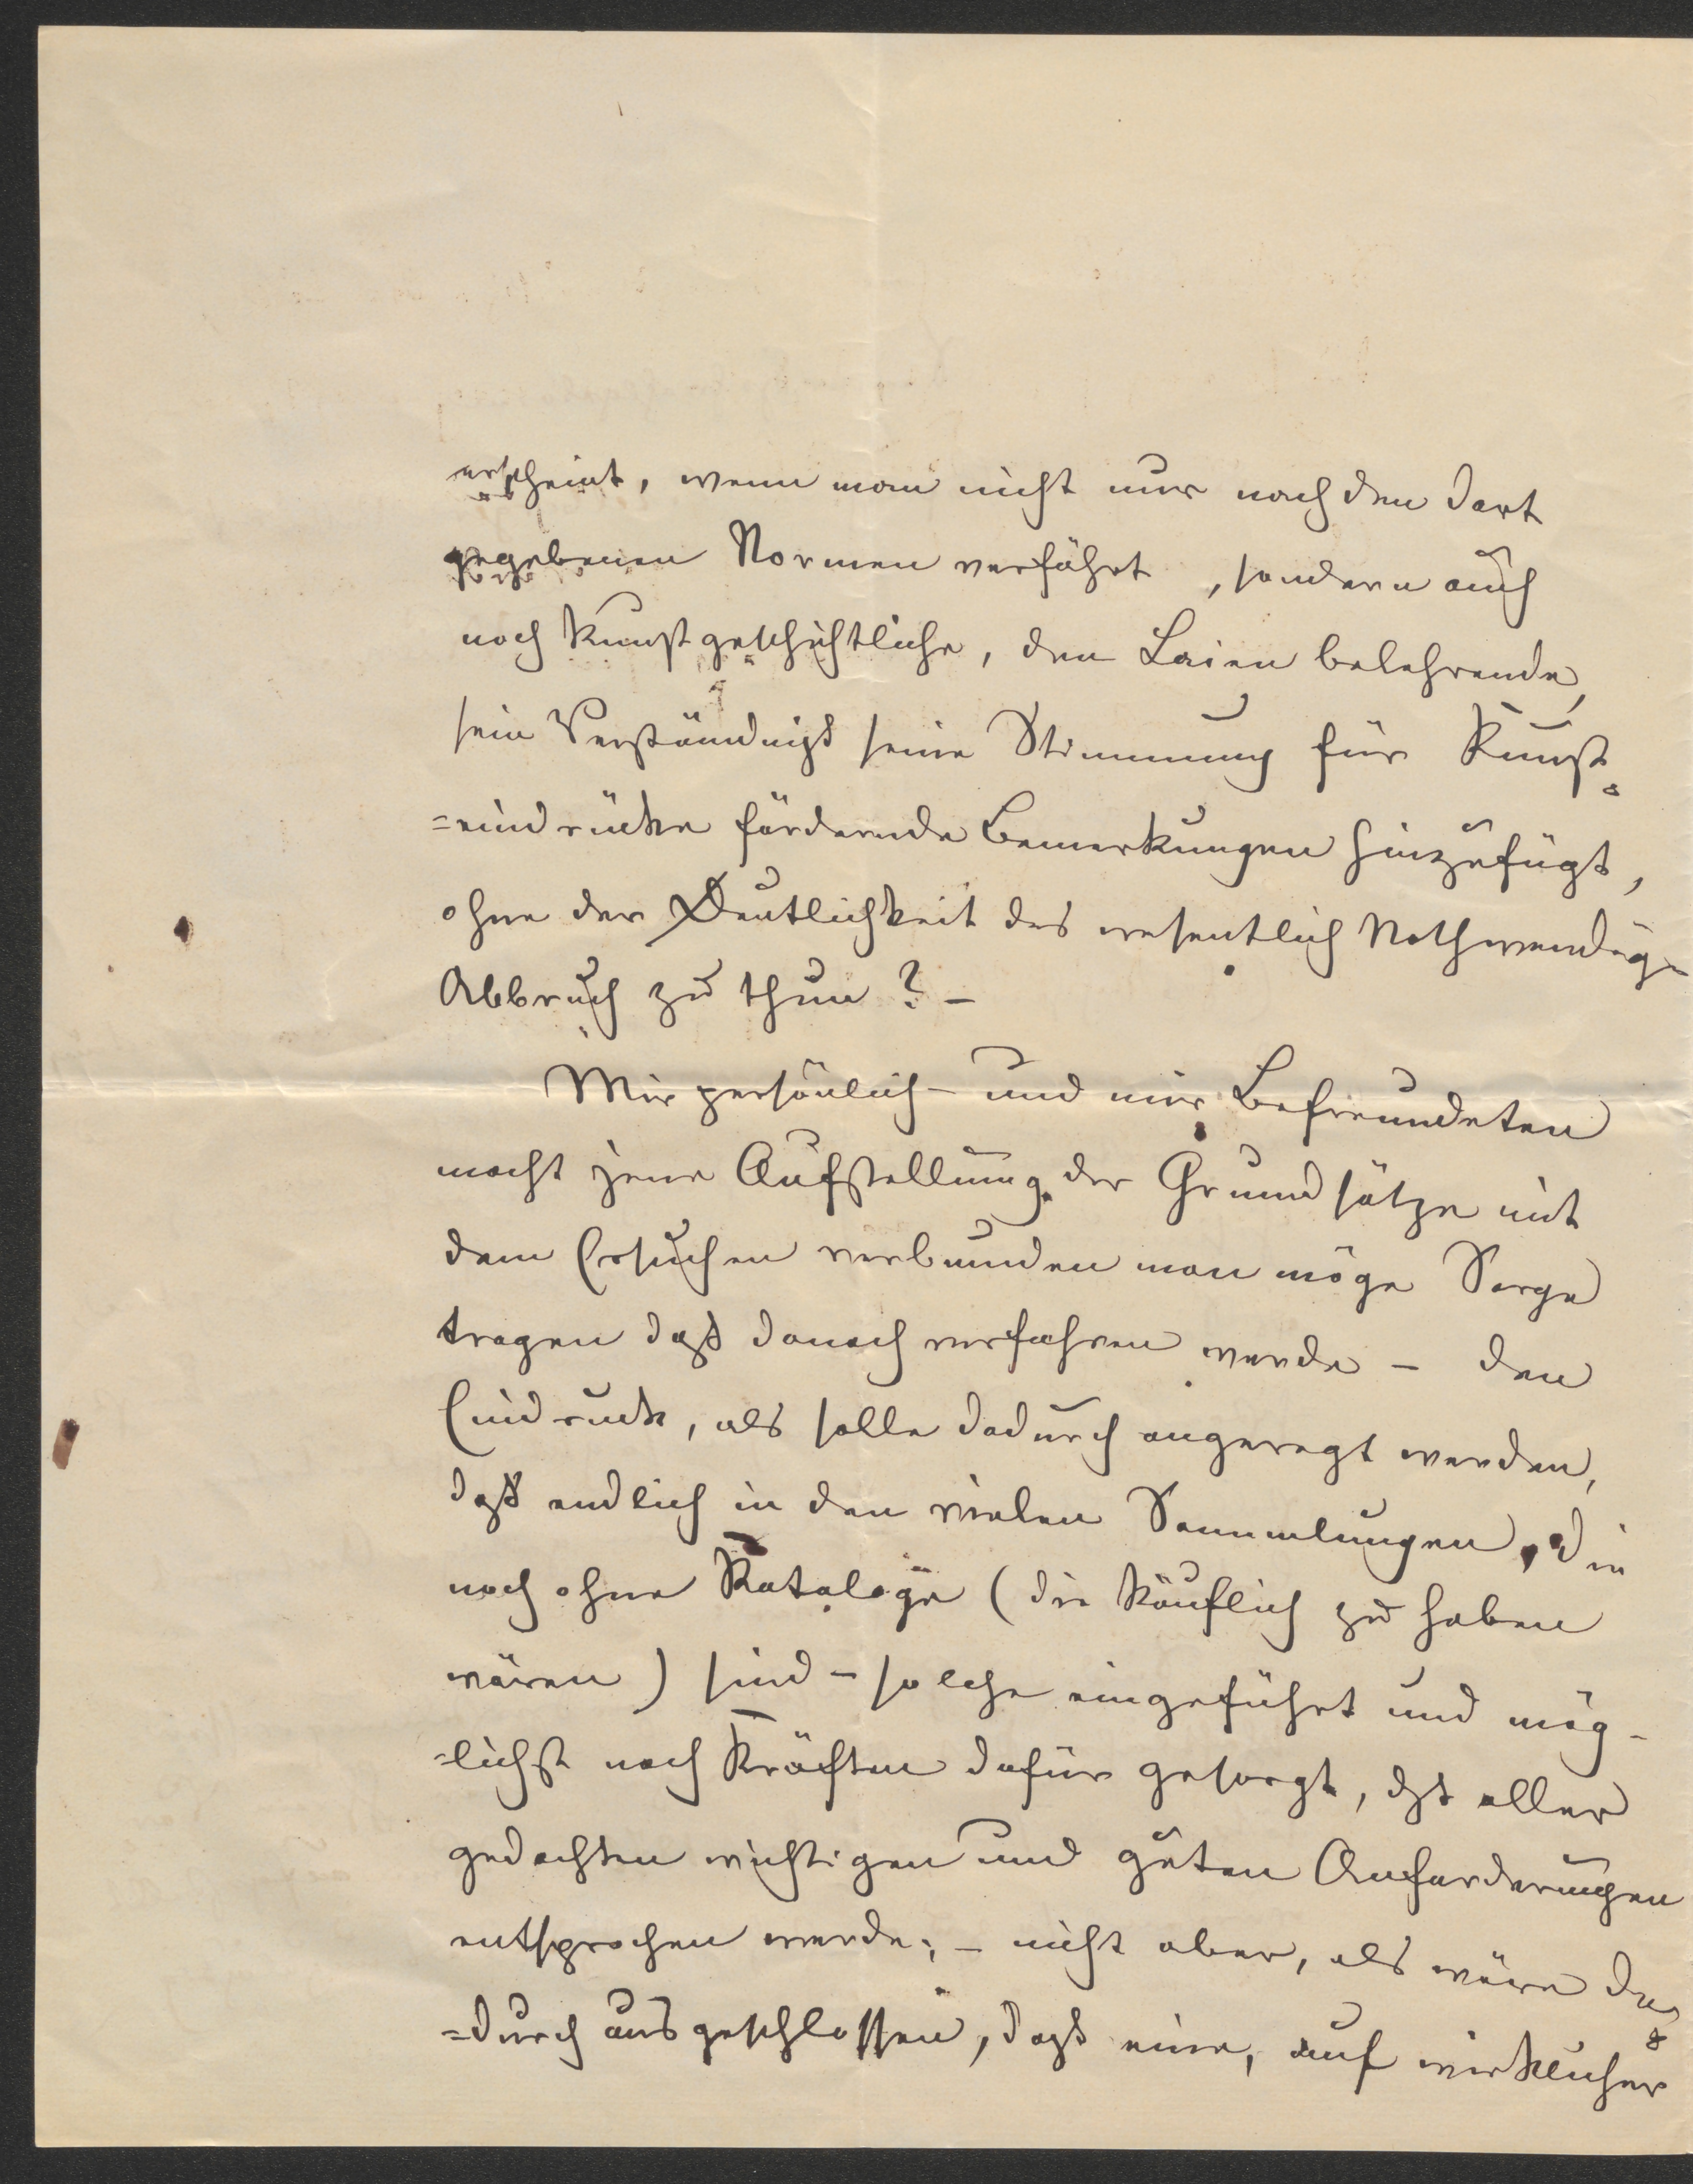 erscheint, wenn man nicht nur nach den dort
gegebenen Normen verfährt, sondern auch
noch kunstgeschichtliche, den Laien belehrende,
sein Verständniß seine Stimmung für Kunst=
=eindrücke fördernde Bemerkungen hinzufügt,
ohne der Deutlichkeit des wesentlich Nothwendigen
Abbruch zu thun? –
Mir persönlich – und mir Befreundeten
macht jene Aufstellung der Grundsätze mit
dem Ersuchen verbunden man möge Sorge
tragen daß danach verfahren werde – den
Eindruck, als solle dadurch angeregt werden,
daß endlich in den vielen Sammlungen, die
noch ohne Kataloge (die käuflich zu haben
wären) sind – solche eingeführt und mög-
-lichst nach Kräften dafür gesorgt, daß allen
gedachten wichtigen und guten Anforderungen
entsprochen werde; – nicht aber, als wäre da=
=durch ausgeschlossen, daß eine, auf wirklicher